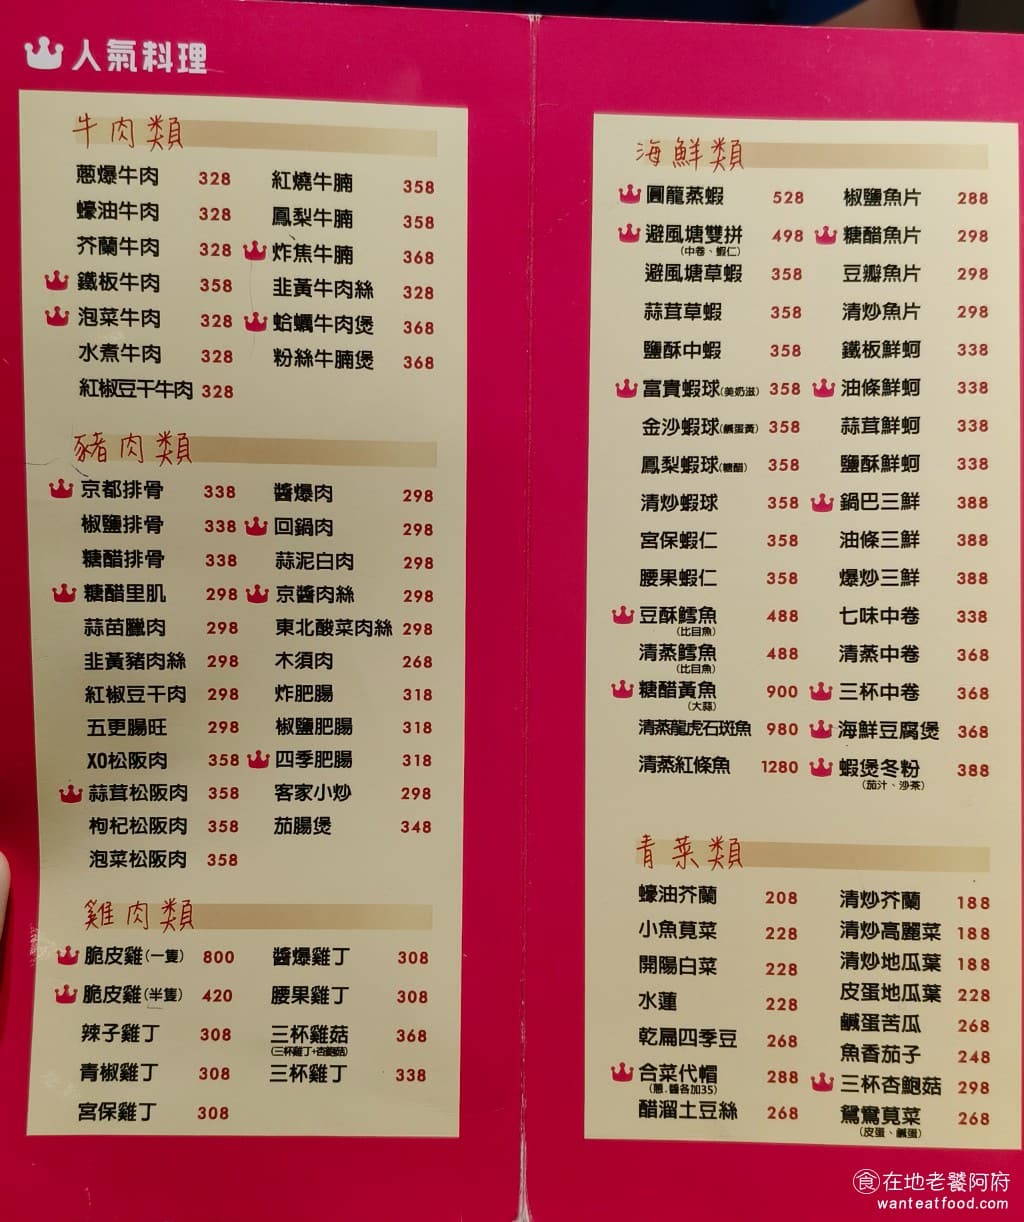 人氣料理
牛肉類
蔥爆牛肉 328
蠔油牛肉 328
芥蘭牛肉 328
鐵板牛肉 358
泡菜牛肉 328
水煮牛肉 328
紅椒豆干牛肉 328
紅燒牛腩 358
鳳梨牛腩 358
炸焦牛腩 368
韭黃牛肉絲 328
蛤蠣牛肉煲 368
粉絲牛腩煲 368
豬肉類
京都排骨 338
椒鹽排骨 338
糖醋排骨 338
糖醋里肌 298
蒜苗臘肉 298
韭黃豬肉絲 298
紅椒豆干肉 298
五更腸旺 298
XO松阪肉 358
蒜茸松阪肉 358
枸杞松阪肉 358
泡菜松阪肉 358
醬爆肉 298
回鍋肉 298
蒜泥白肉 298
京醬肉絲 298
東北酸菜肉絲 298
木須肉 268
炸肥腸 318
椒鹽肥腸 318
四季肥腸 318
客家小炒 298
茄腸煲 348
雞肉類
脆皮雞(一隻) 800
脆皮雞(半隻) 420
辣子雞丁 308
青椒雞丁 308
宮保雞丁 308
醬爆雞丁 308
腰果雞丁 308
三杯雞菇 368
(三杯雞丁+杏鮑菇)
三杯雞丁 338
海鮮類
圓籠蒸蝦 528
避風塘雙拼 498
(中卷、蝦仁)
避風塘草蝦 358
蒜茸草蝦 358
鹽酥中蝦 358
富貴蝦球(美奶滋) 358
金沙蝦球(鹹蛋黃) 358
鳳梨蝦球(糖醋) 358
清炒蝦球 358
宮保蝦仁 358
腰果蝦仁 358
豆酥鱈魚 488
(比目魚)
清蒸鱈魚 488
(比目魚)
糖醋黃魚 900
(大蒜)
清蒸龍虎石斑魚 980
清蒸紅條魚 1280
椒鹽魚片 288
糖醋魚片 298
豆瓣魚片 298
清炒魚片 298
鐵板鮮蚵 338
油條鮮蚵 338
蒜茸鮮蚵 338
鹽酥鮮蚵 338
鍋巴三鮮 388
油條三鮮 388
爆炒三鮮 388
七味中卷 338
清蒸中卷 368
三杯中卷 368
海鮮豆腐煲 368
蝦煲冬粉 388
(茄汁、沙茶)
青菜類
蠔油芥蘭 208
小魚莧菜 228
開陽白菜 228
水蓮 228
乾扁四季豆 268
合菜代帽 288
(蔥.醬各加35)
醋溜土豆絲 268
清炒芥蘭 188
清炒高麗菜 188
清炒地瓜葉 188
皮蛋地瓜葉 228
鹹蛋苦瓜 268
魚香茄子 248
三杯杏鮑菇 298
鴛鴦莧菜 268
(皮蛋、鹹蛋)
食在地老饕阿府
wanteatfood.com